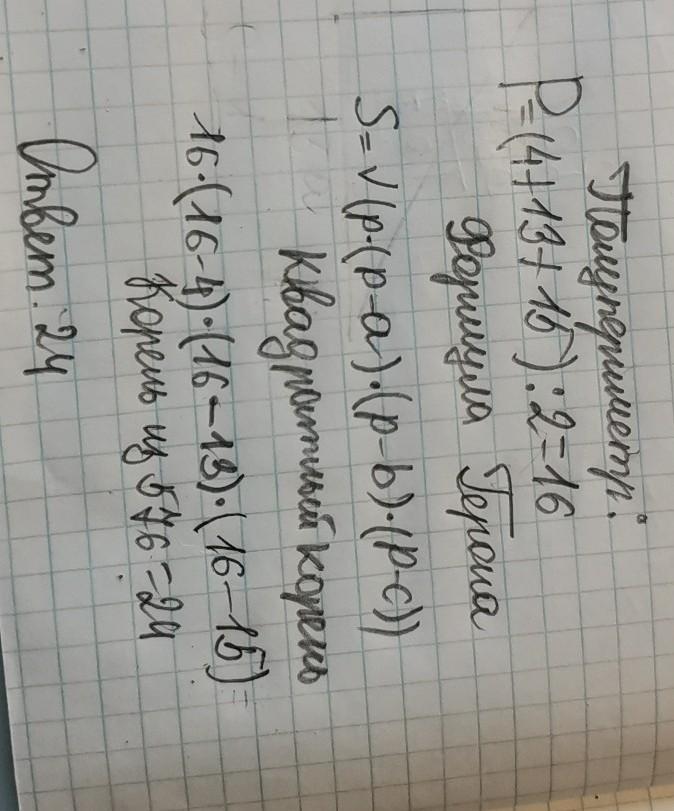 Полупериметр:
P=(4+13+15):2=16
Формула Герона
S=√(p·(p-a)·(p-b)·(p-c))
Квадратный корень
16·(16-4)·(16-13)·(16-15)=
Корень из 576=24
Ответ: 24